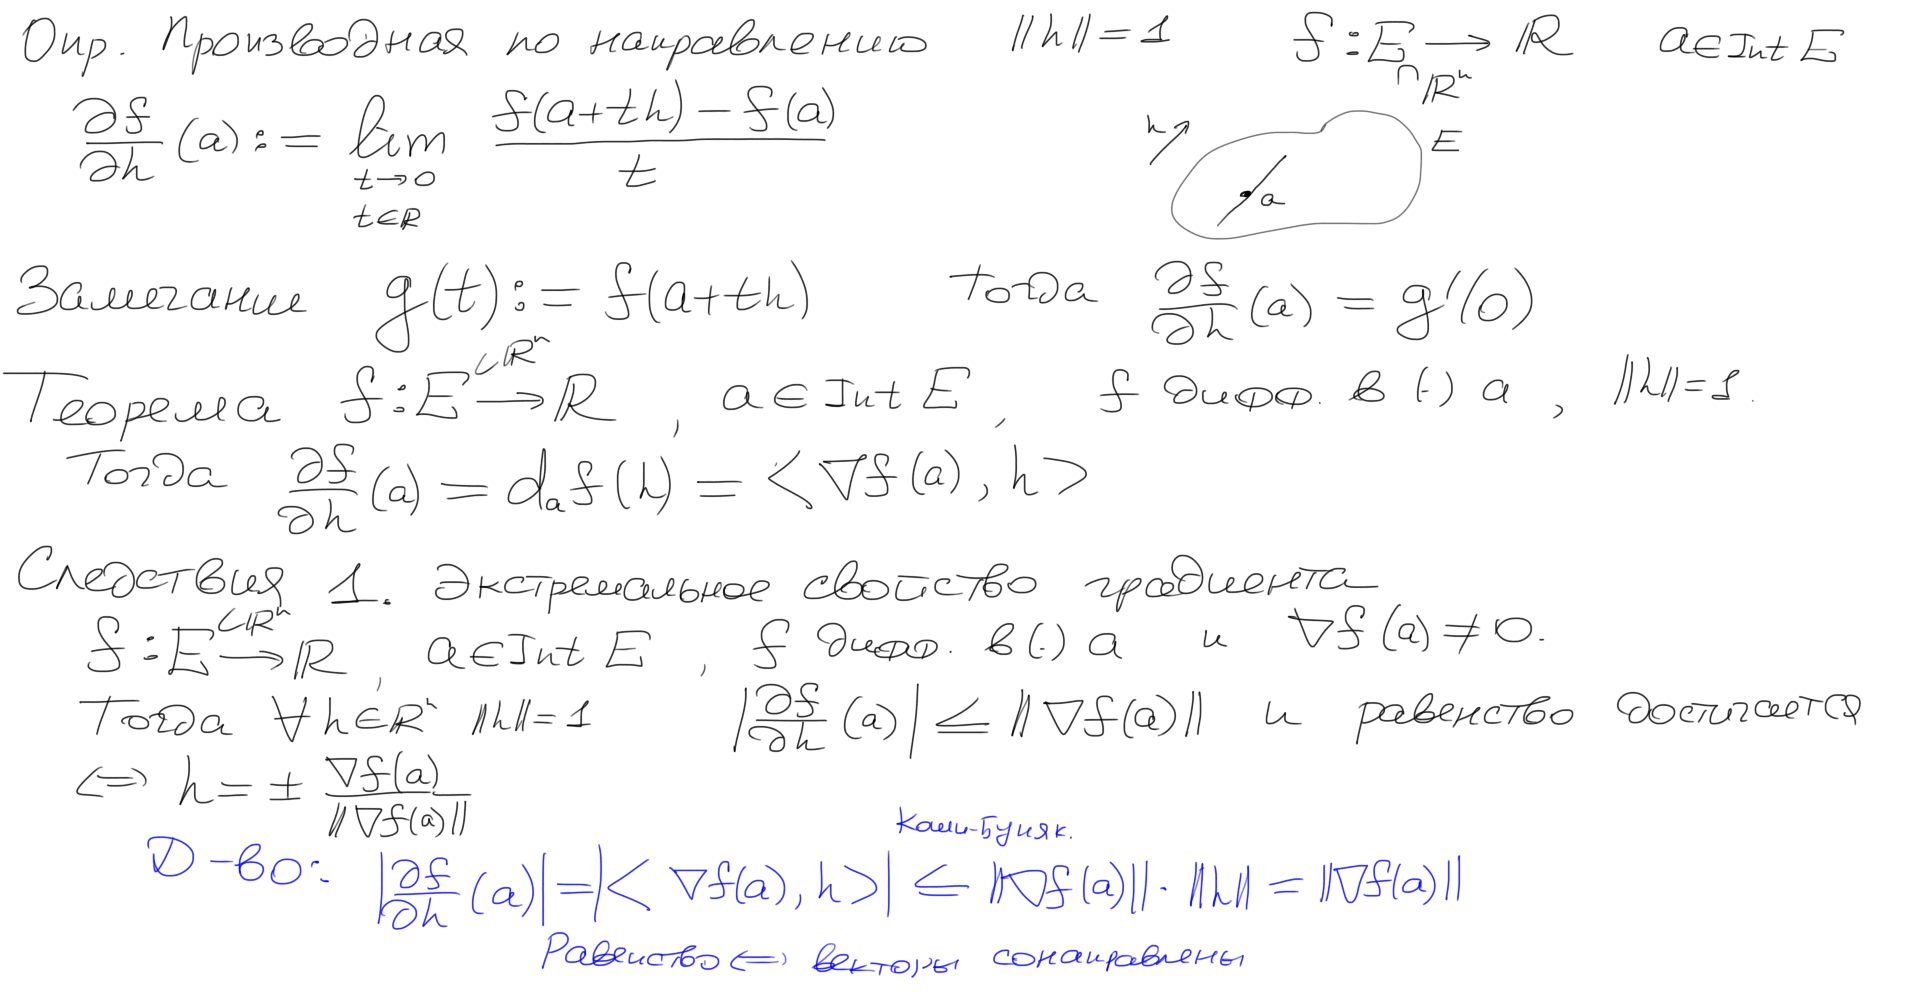 Опр. Производная по направлению ||h|| = 1 f : E ⟶ ℝ a ∈ Int E
∩ ℝⁿ
∂f/∂h (a) := lim f(a+th) − f(a) / t
t→0
t∈ℝ
h E
a
Замечание g(t) := f(a+th) Тогда ∂f/∂h (a) = g'(0)
Теорема f : E ⊂ℝⁿ ⟶ ℝ, a ∈ Int E, f дифф. в (·) a, ||h|| = 1.
Тогда ∂f/∂h (a) = dₐf(h) = <∇f(a), h>
Следствия 1. Экстремальное свойство градиента
f : E ⊂ℝⁿ ⟶ ℝ, a ∈ Int E, f дифф. в (·) a и ∇f(a) ≠ 0.
Тогда ∀h∈ℝⁿ ||h|| = 1 |∂f/∂h (a)| ≤ ||∇f(a)|| и равенство достигается
⟺ h = ± ∇f(a) / ||∇f(a)||
Коши-Буняк.
Д-во: |∂f/∂h (a)| = |<∇f(a), h>| ≤ ||∇f(a)|| · ||h|| = ||∇f(a)||
Равенство ⟺ векторы сонаправлены